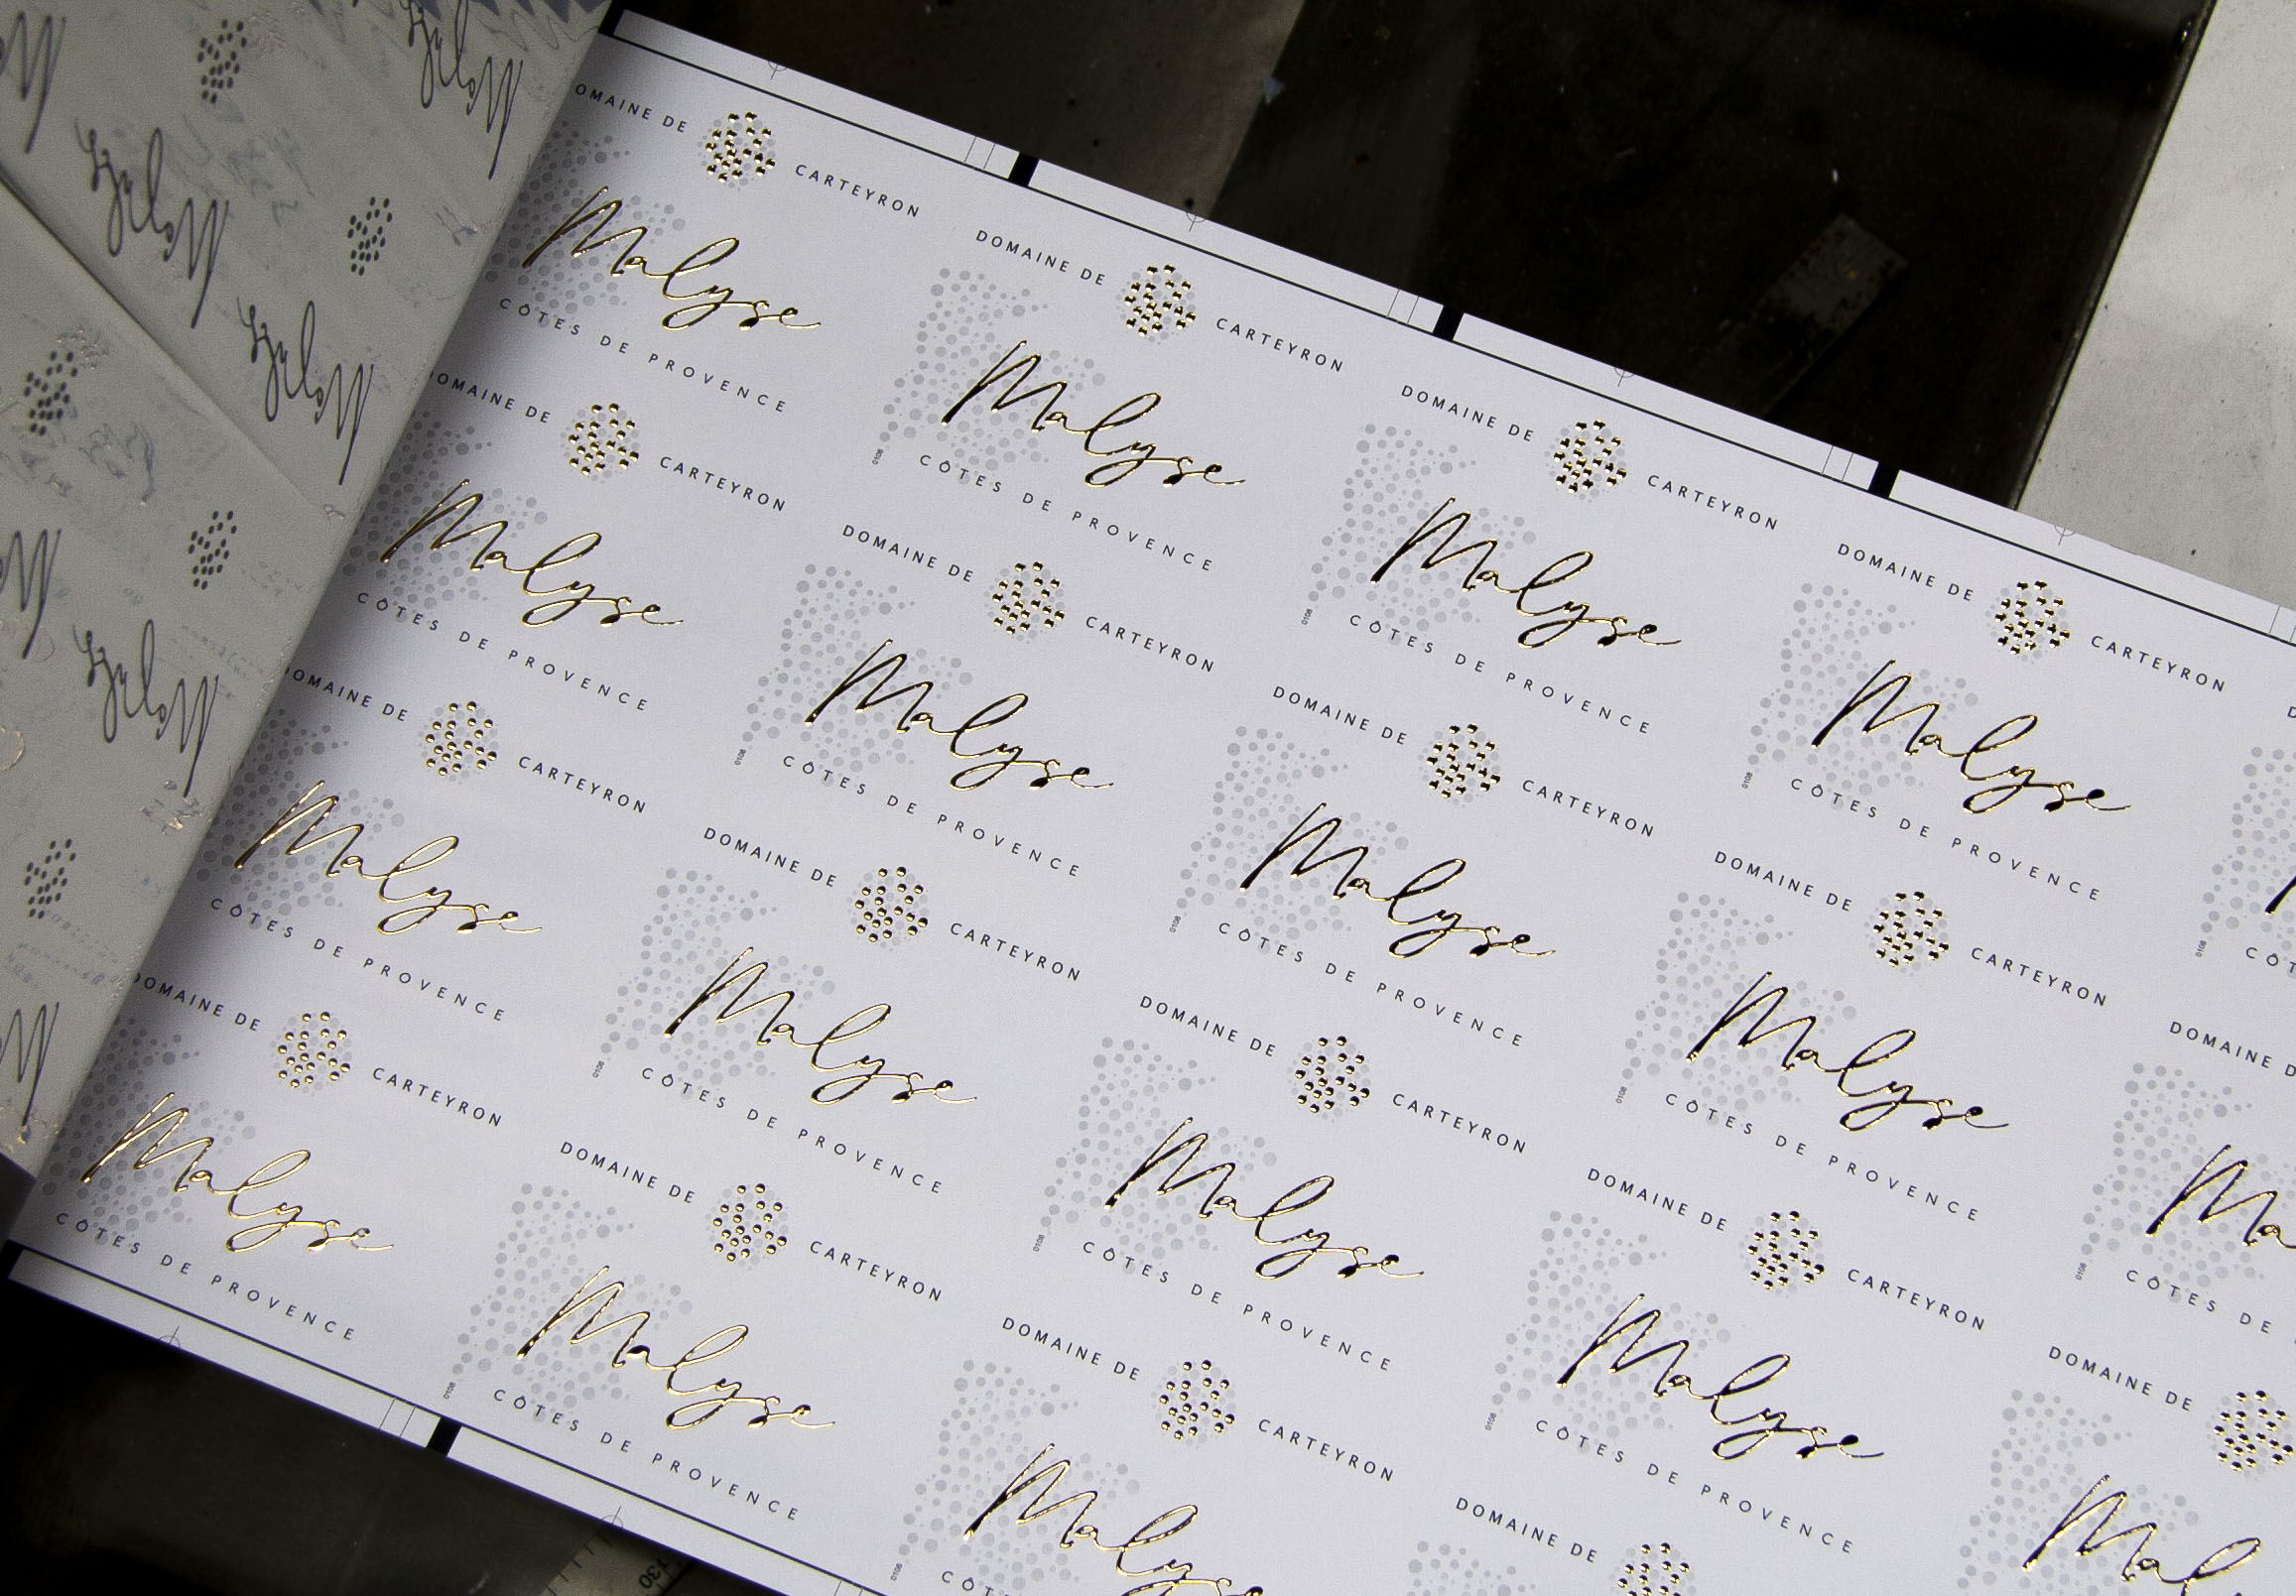 DOMAINE DE CARTEYRON
Malyse
CÔTES DE PROVENCE
DOMAINE DE CARTEYRON
Malyse
0108
CÔTES DE PROVENCE
DOMAINE DE CARTEYRON
Malyse
0108
CÔTES DE PROVENCE
DOMAINE DE CARTEYRON
Malyse
0108
CÔTES DE PROVENCE
DOMAINE DE CARTEYRON
Malyse
CÔTES DE PROVENCE
DOMAINE DE CARTEYRON
Malyse
0108
CÔTES DE PROVENCE
DOMAINE DE CARTEYRON
Malyse
0108
CÔTES DE PROVENCE
DOMAINE DE CARTEYRON
Malyse
0108
CÔTES DE PROVENCE
0108
DOMAINE DE CARTEYRON
Malyse
CÔTES DE PROVENCE
DOMAINE DE CARTEYRON
Malyse
0108
CÔTES DE PROVENCE
DOMAINE DE CARTEYRON
Malyse
0108
CÔTES DE PROVENCE
DOMAINE DE CARTEYRON
Malyse
0108
CÔTES DE PROVENCE
DOMAINE
Ma
0108
CÔTES DE
DOMAINE DE CARTEYRON
Malyse
CÔTES DE PROVENCE
DOMAINE DE CARTEYRON
Malyse
0108
CÔTES DE PROVENCE
DOMAINE DE CARTEYRON
Malyse
0108
DOMAINE DE
DOMAINE DE
Mal
130